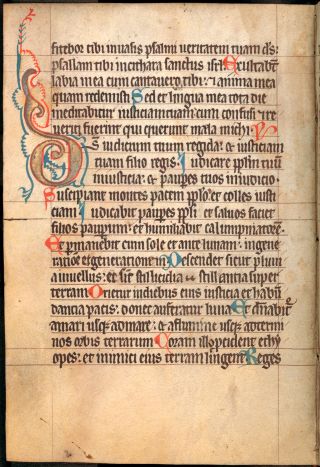 fitebor tibi in uasis psalmi ueritatem tuam ds:
psallam tibi in cithara sanctus isrl. Exultabt
labia mea cum cantauero tibi: & anima mea
quam redemisti. Sed et lingua mea tota die
meditabitur iusticiam tuam cum confusi & re
ueriti fuerint qui querunt mala michi.
Ds iudicium tuum regi da: & iusticiam
tuam filio regis. Iudicare pplm tuu
in iusticia: & paupes tuos in iudicio.
Suscipiant montes pacem pplo: et colles iusti
ciam. Iudicabit paupes ppli et saluos faciet
filios paupum: et humiliabit calumpniatore.
Et permanebit cum sole et ante lunam: in gene
ratioe et generatione. Descendet sicut pluui
a in uellus: et sic stillicidia stillantia super
terram. Orietur in diebus eius iusticia et habu
dantia pacis: donec auferatur luna. Et dnabit
a mari usq; ad mare: & a flumine usq; ad termi
nos orbis terrarum. Coram illo procident ethy
opes: et inimici eius terram lingent. Reges